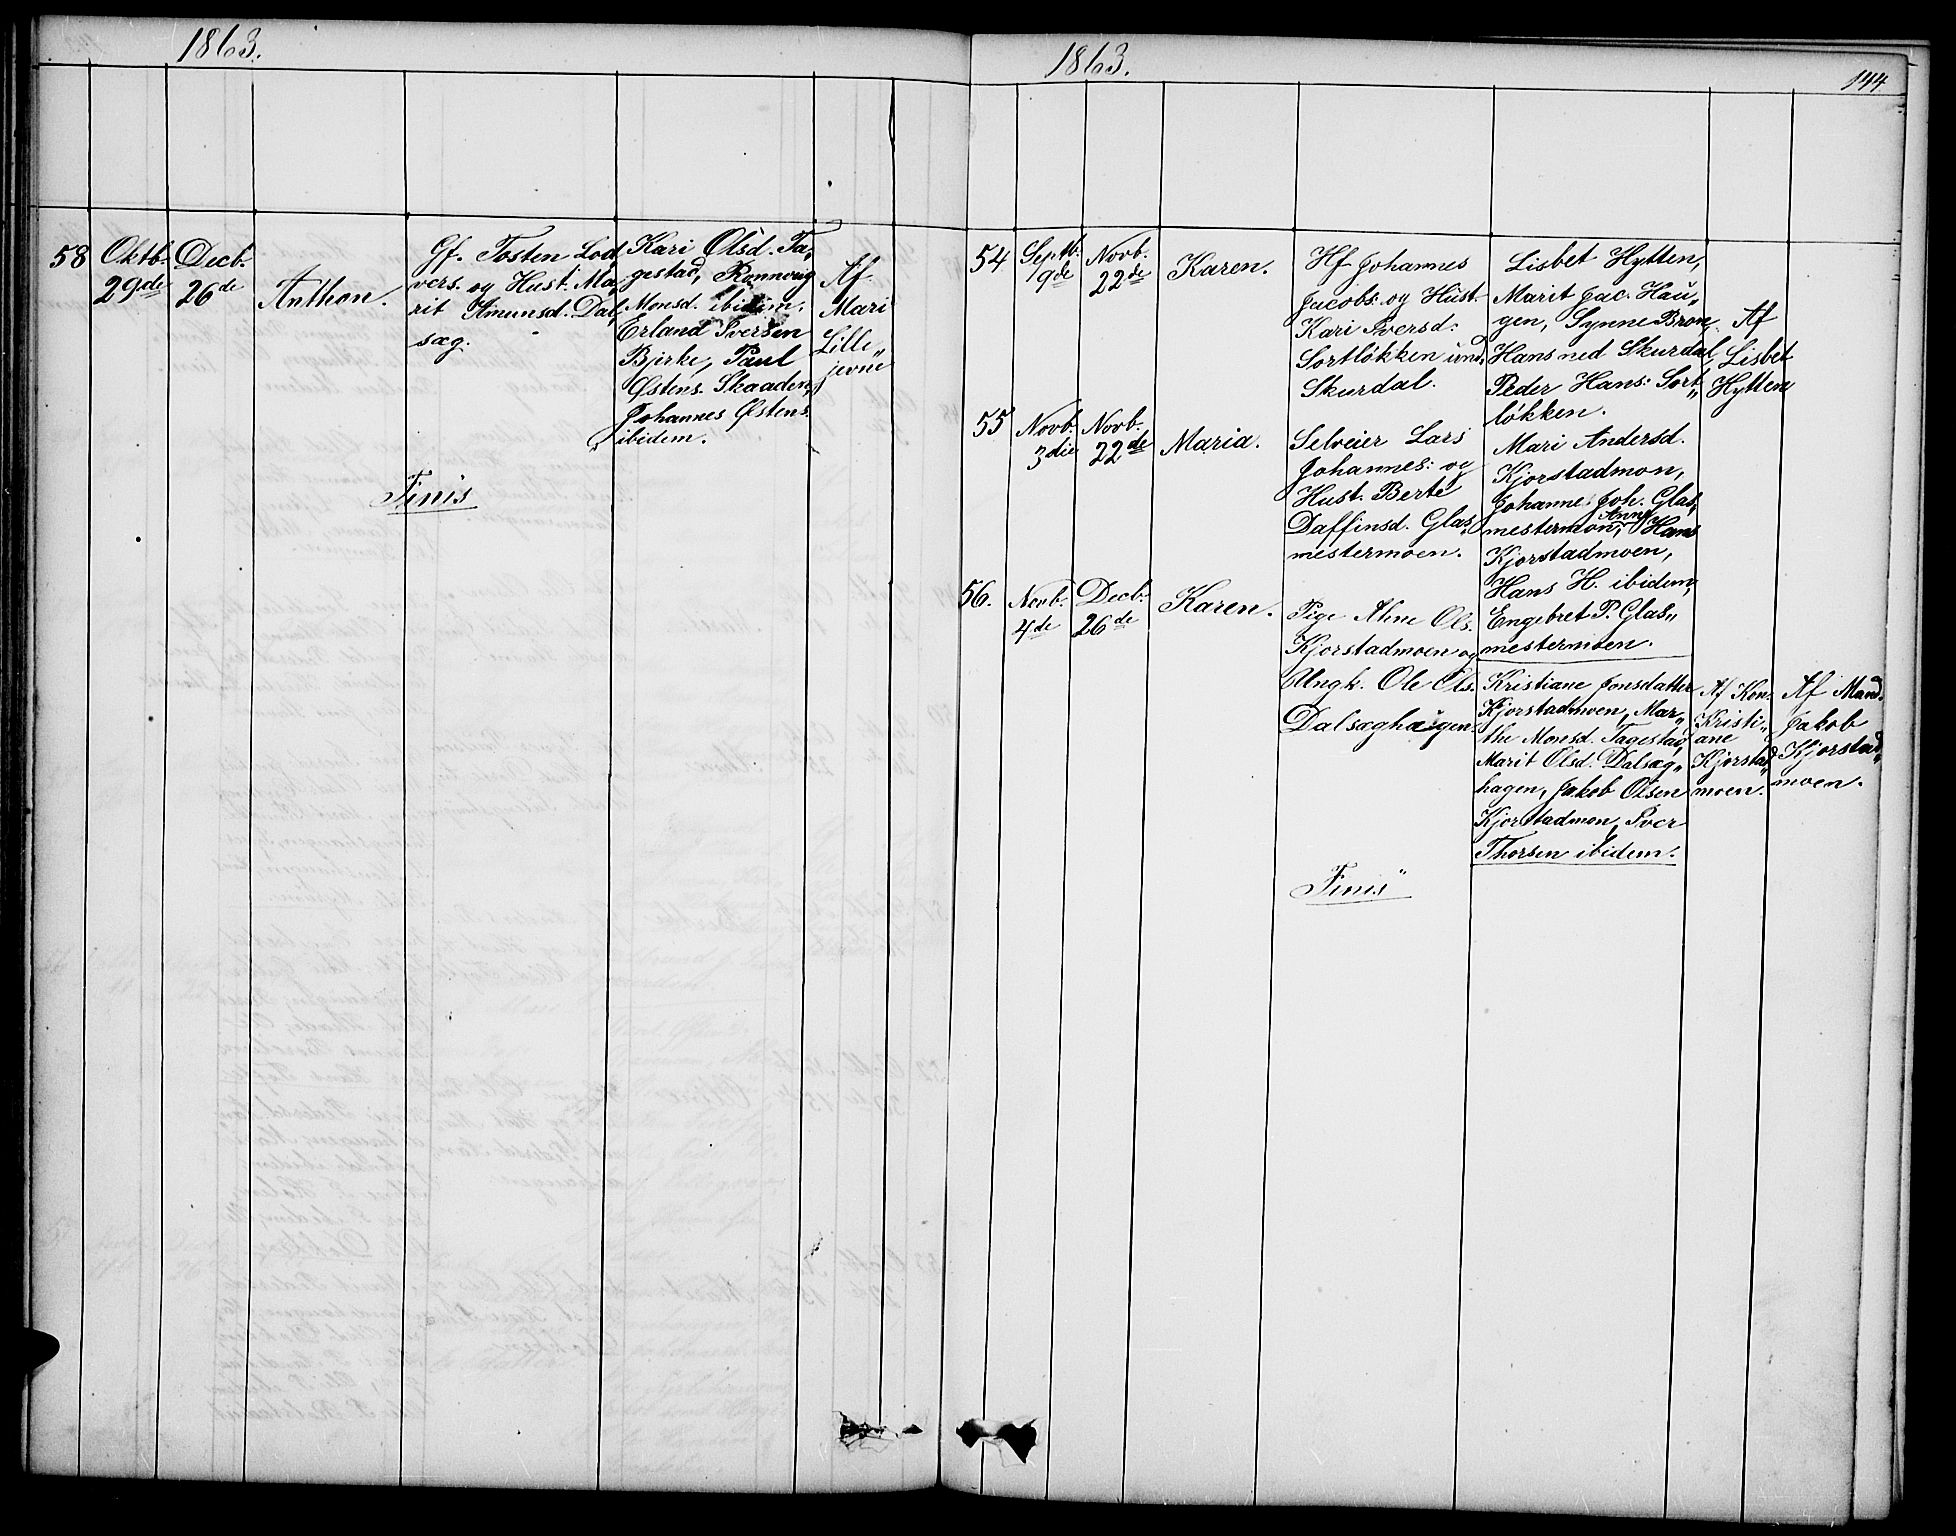 1863.
58
Oktb.
29de
Decb.
26de
Anthon.
Gf. Tosten Lod,
vers. og Hust. Ma,
rit Amunsd. Dal,
sæg.
Kari Olsd. Ta,
gestad, Ronnoug
Monsd. ibidem.
Erland Iversen
Bjirke, Paul
Østens. Skaaden,
Johannes Østens.
ibidem.
Af
Mari
Lille„
jevne
Finis
1863.
144
54
Septb.
9de
Novb.
22de
Karen.
Hf Johannes
Jacobs: og Hust.
Kari Iversd.
Sortløkken und.
Skurdal.
Lisbet Hytten,
Marit Jac. Hau„
gen, Synne Brom,
Hans ned Skurdal,
Peder Hans: Sort„
løkken.
Af
Lisbet
Hytten
55
Novb.
3die
Novb.
22de
Maria.
Selveier Lars
Johannes: og
Hust. Berte
Daffinsd. Glas,
mestermoen.
Mari Andersd.
Kjorstadmon,
Johanne Joh. Glas,
mestermon, Anne Hans
Kjorstadmoen,
Hans H. ibidem,
Engebret P. Glas„
mestermoen.
56.
Novb.
4de
Decb.
26de
Karen.
Pige Ahne Ols.
Kjorstadmoen og
Ungk. Ole Ols.
Dalsæghaugen.
Kristiane Jonsdatter
Kjorstadmoen, Mar„
the Monsd. Tagestad,
Marit Olsd. Dalsæg„
hagen, Jakob Olsen
Kjorstadmon, Iver
Thorsen ibidem.
Af Kon.
Kristi„
ane
Kjorstad„
moen.
Af Mand.
Jakob
Kjorstad„
moen.
Finis